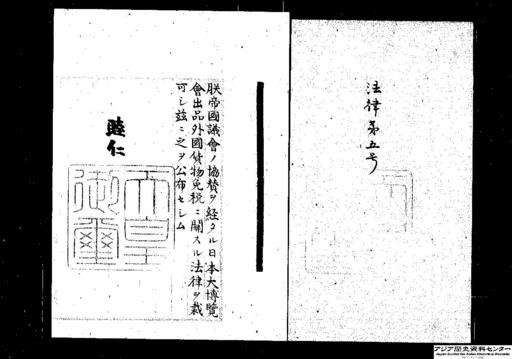 法律第五号
朕帝國議會ノ協賛ヲ経タル日本大博覧
會出品外國貨物免税ニ關スル法律ヲ裁
可シ茲ニ之ヲ公布セシム
睦仁
天皇
御璽
アジア歴史資料センター
Japan Center for Asian Historical Records